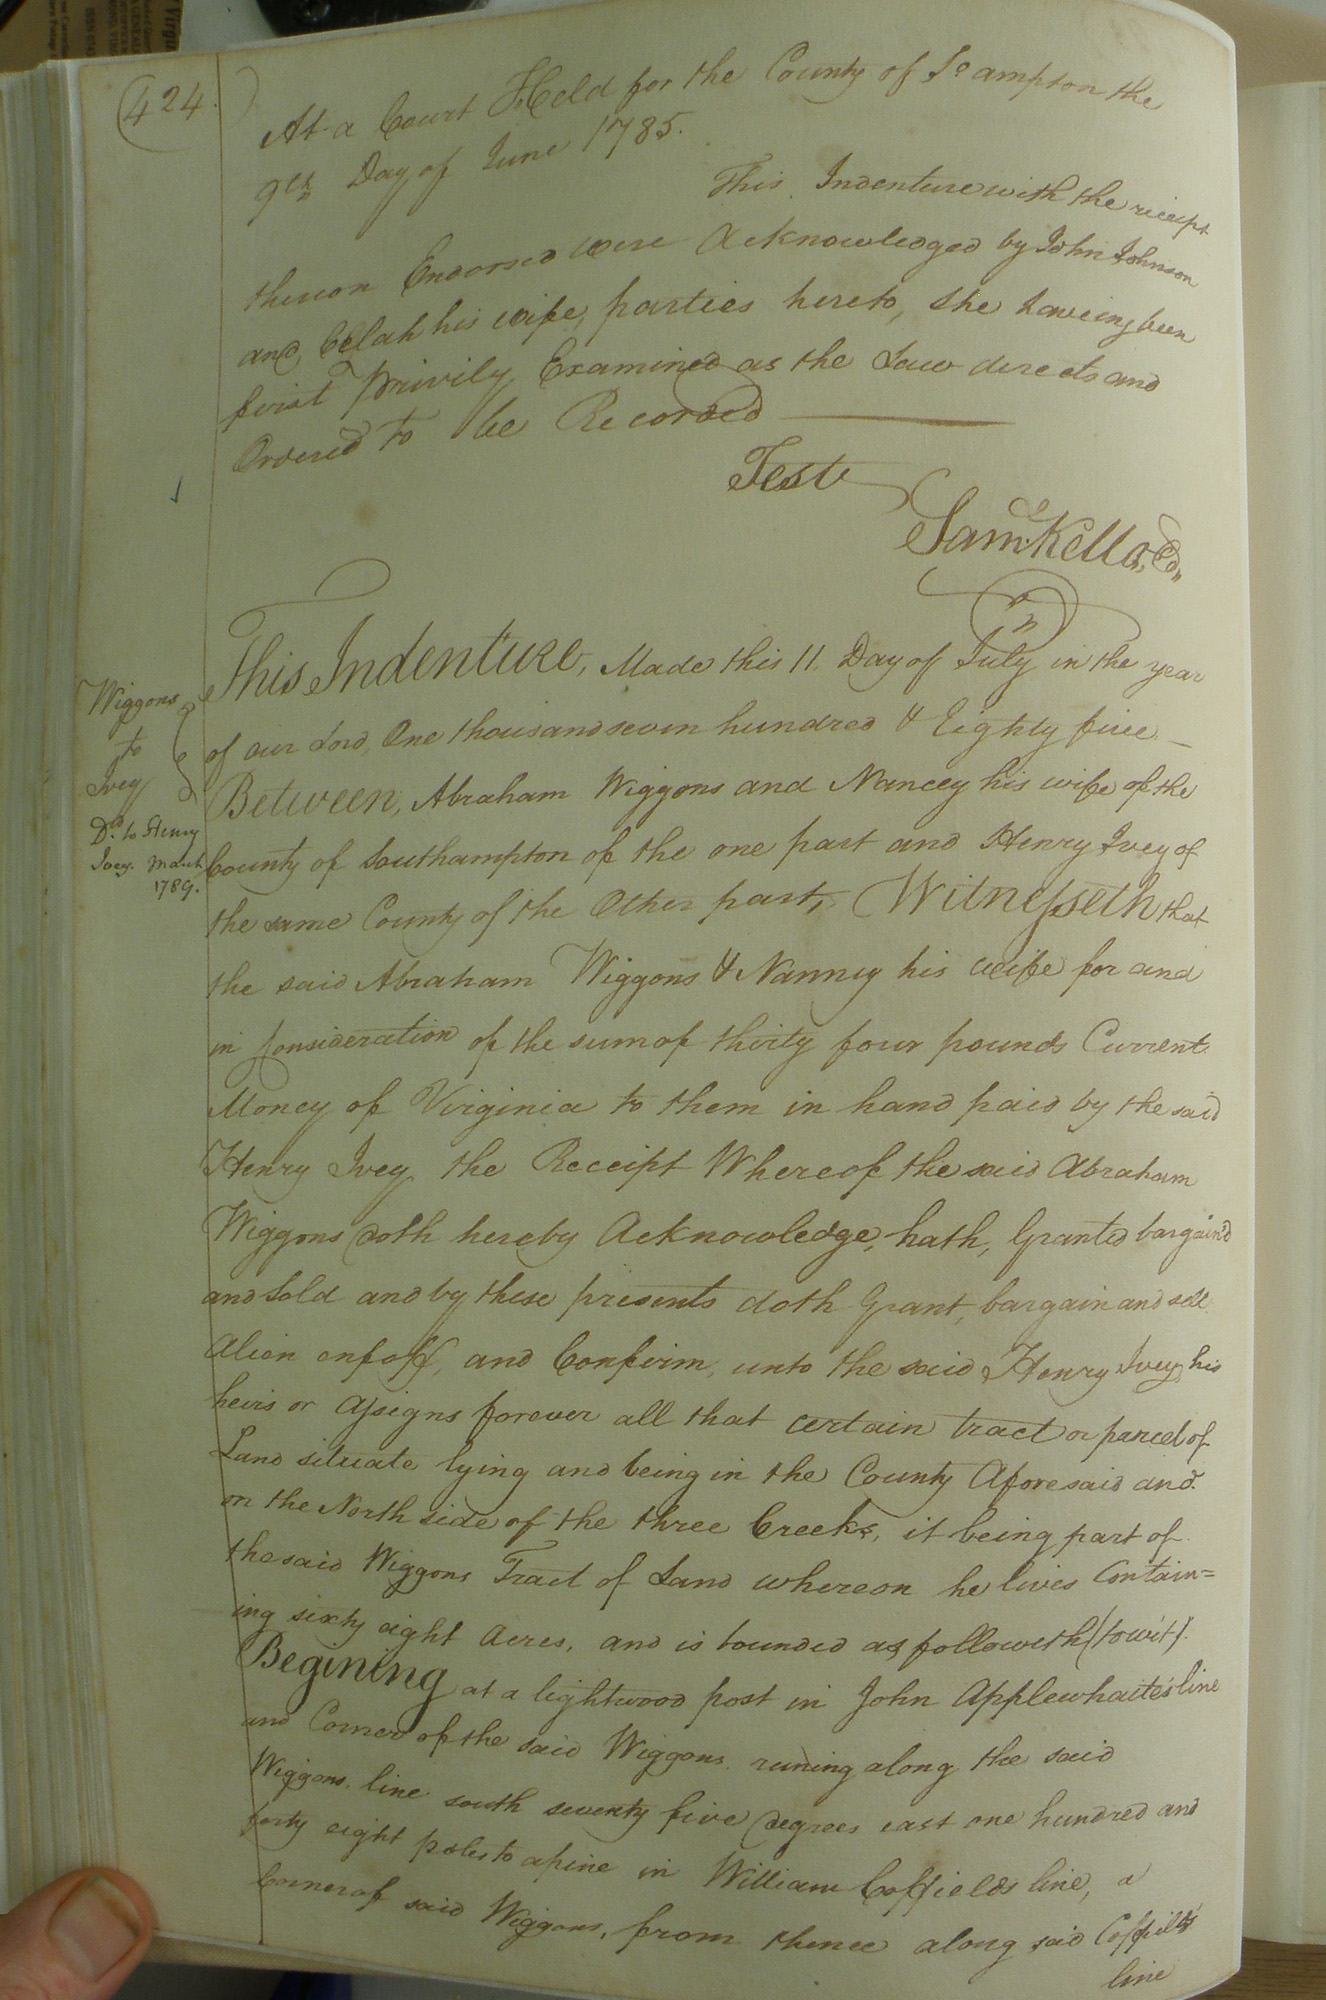 424.
At a Court Held for the County of So ampton the
9th Day of June 1785.
This Indenture with the receipt
thereon Endorsed were Acknowledged by John Johnson
and Celah his wife, parties hereto, she haveing been
first Privily Examined as the Law directs and
Ordered to be Recorded
Teste
Saml. Kello, Cl
This Indenture, Made this 11. Day of July in the year
of our Lord, One thousand seven hundred & Eighty five
Wiggons
to
Ivey
Dd. to Henry
Ivey. March
1789.
Between, Abraham Wiggons and Nancey his wife of the
County of Southampton of the one part and Henry Ivey of
the same County of the Other part, Witnesseth that
the said Abraham Wiggons & Nanney his wife for and
in Consideration of the sum of thirty four pounds Current
Money of Virginia to them in hand paid by the said
Henry Ivey the Receipt Whereof the said Abraham
Wiggons doth hereby Acknowledge, hath, Granted bargain'd
and sold and by these presents doth Grant, bargain and sell
Alien enfoff, and Confirm, unto the said Henry Ivey, his
heirs or Assigns forever all that certain tract or parcel of
Land situate lying and being in the County Aforesaid and
on the North side of the three Creeks, it being part of
the said Wiggons Tract of Land whereon he lives Contain=
ing sixty eight Acres, and is bounded as followeth (to wit).
Begining at a lightwood post in John Applewhaite's line
and Corner of the said Wiggons. runing along the said
Wiggons. line south seventy five degrees east one hundred and
forty eight poles to a pine in William Coffields line, a
Corner of said Wiggons, from thence along said Coffields
line